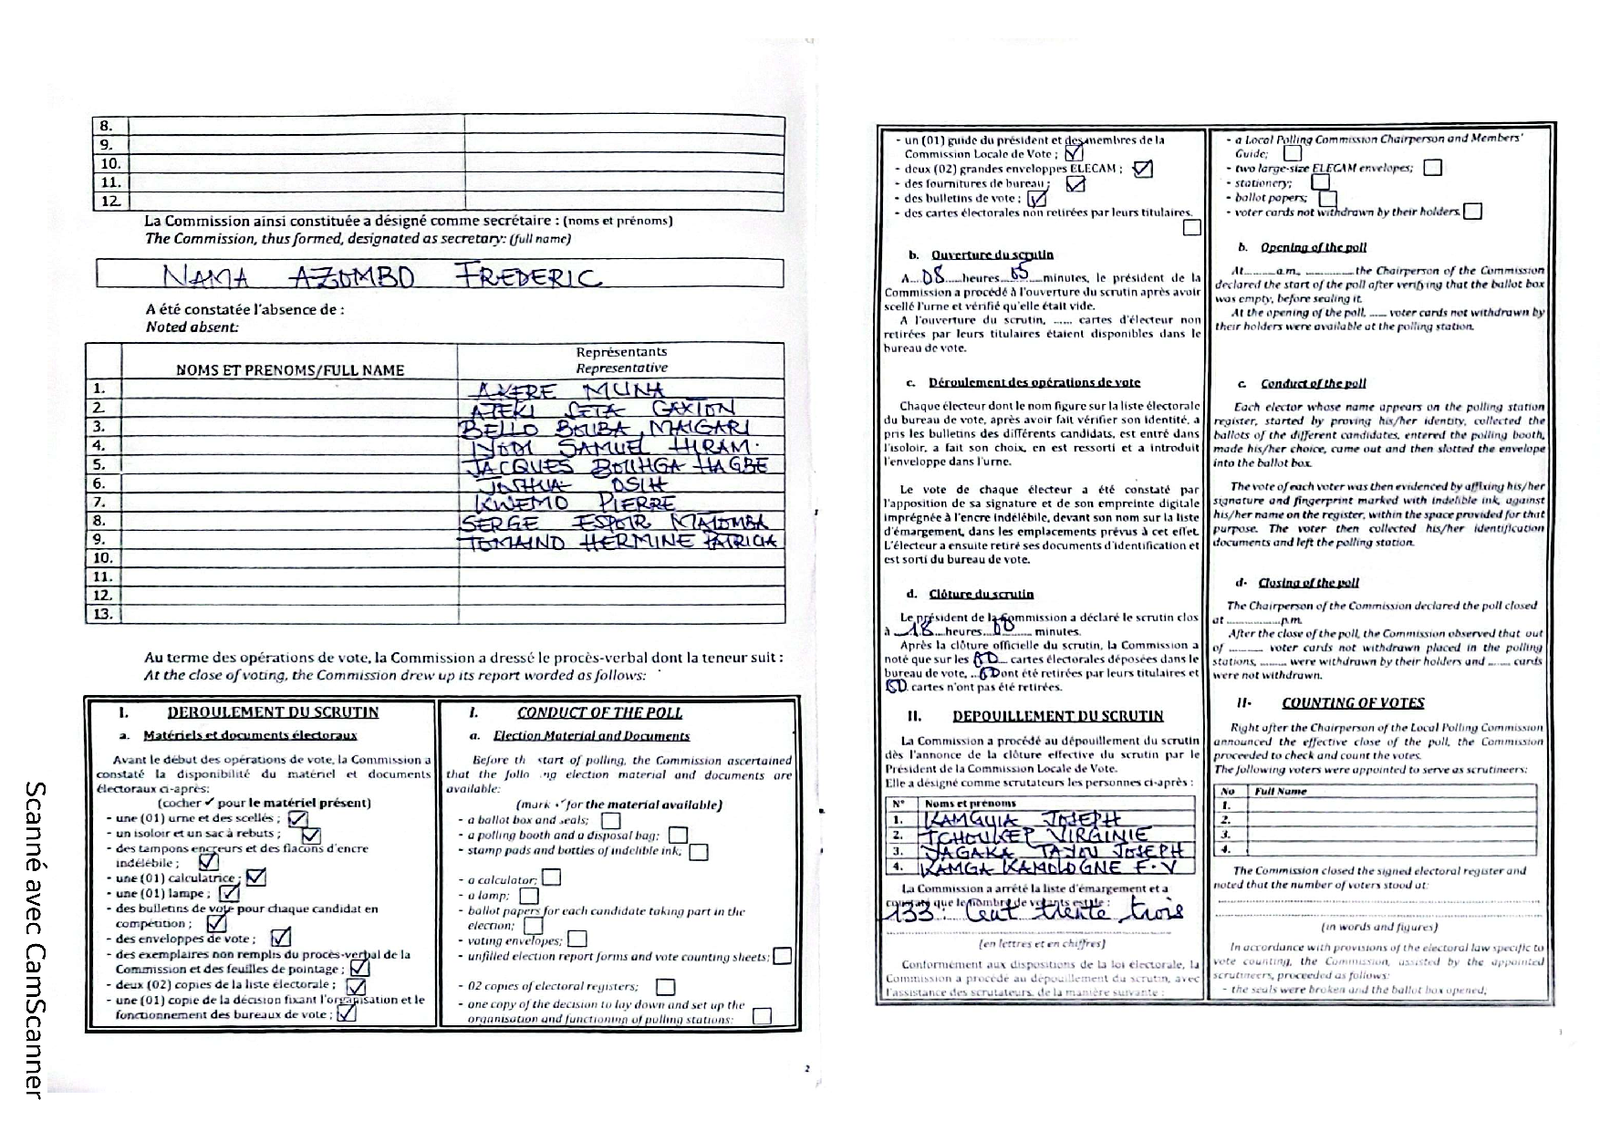 8.
9.
10.
11.
12.
La Commission ainsi constituée a désigné comme secrétaire : (noms et prénoms)
The Commission, thus formed, designated as secretary: (full name)
NAMA AZOMBO FREDERIC
A été constatée l'absence de :
Noted absent:
NOMS ET PRENOMS/FULL NAME
Représentants
Representative
1. AKERE MUNA
2. ATEKI SETA CAXTON
3. BELLO BOUBA MAIGARI
4. IYODI SAMUEL HIRAM
5. JACQUES BOUHGA HAGBE
6. JOSHUA OSIH
7. KWEMO PIERRE
8. SERGE ESPOIR MATOMBA
9. TOMAINO HERMINE PATRICIA
10.
11.
12.
13.
Au terme des opérations de vote, la Commission a dressé le procès-verbal dont la teneur suit :
At the close of voting, the Commission drew up its report worded as follows:
I. DEROULEMENT DU SCRUTIN
a. Matériels et documents électoraux
Avant le début des opérations de vote, la Commission a
constaté la disponibilité du matériel et documents
électoraux ci-après:
(cocher ✓ pour le matériel présent)
- une (01) urne et des scellés ; ☑
- un isoloir et un sac à rebuts ; ☑
- des tampons encreurs et des flacons d'encre
indélébile ; ☑
- une (01) calculatrice ; ☑
- une (01) lampe ; ☑
- des bulletins de vote pour chaque candidat en
compétition ; ☑
- des enveloppes de vote ; ☑
- des exemplaires non remplis du procès-verbal de la
Commission et des feuilles de pointage ; ☑
- deux (02) copies de la liste électorale ; ☑
- une (01) copie de la décision fixant l'organisation et le
fonctionnement des bureaux de vote ; ☑
I. CONDUCT OF THE POLL
a. Election Material and Documents
Before th start of polling, the Commission ascertained
that the follo ng election material and documents are
available:
(mark ✓ for the material available)
- a ballot box and seals; ☐
- a polling booth and a disposal bag; ☐
- stamp pads and bottles of indelible ink; ☐
- a calculator; ☐
- a lamp; ☐
- ballot papers for each candidate taking part in the
election; ☐
- voting envelopes; ☐
- unfilled election report forms and vote counting sheets; ☐
- 02 copies of electoral registers; ☐
- one copy of the decision to lay down and set up the
organisation and functioning of polling stations: ☐
2
- un (01) guide du président et des membres de la
Commission Locale de Vote ; ☑
- deux (02) grandes enveloppes ELECAM ; ☑
- des fournitures de bureau ; ☑
- des bulletins de vote ; ☑
- des cartes électorales non retirées par leurs titulaires.
☐
b. Ouverture du scrutin
A...08....heures...05...minutes, le président de la
Commission a procédé à l'ouverture du scrutin après avoir
scellé l'urne et vérifié qu'elle était vide.
A l'ouverture du scrutin, ...... cartes d'électeur non
retirées par leurs titulaires étaient disponibles dans le
bureau de vote.
c. Déroulement des opérations de vote
Chaque électeur dont le nom figure sur la liste électorale
du bureau de vote, après avoir fait vérifier son identité, a
pris les bulletins des différents candidats, est entré dans
l'isoloir, a fait son choix, en est ressorti et a introduit
l'enveloppe dans l'urne.
Le vote de chaque électeur a été constaté par
l'apposition de sa signature et de son empreinte digitale
imprégnée à l'encre indélébile, devant son nom sur la liste
d'émargement, dans les emplacements prévus à cet effet.
L'électeur a ensuite retiré ses documents d'identification et
est sorti du bureau de vote.
d. Clôture du scrutin
Le président de la Commission a déclaré le scrutin clos
à ...18...heures...00...... minutes.
Après la clôture officielle du scrutin, la Commission a
noté que sur les cartes électorales déposées dans le
bureau de vote, ont été retirées par leurs titulaires et
cartes n'ont pas été retirées.
II. DEPOUILLEMENT DU SCRUTIN
La Commission a procédé au dépouillement du scrutin
dès l'annonce de la clôture effective du scrutin par le
Président de la Commission Locale de Vote.
Elle a désigné comme scrutateurs les personnes ci-après :
N° Noms et prénoms
1. KAMGUIA JOSEPH
2. TCHOUKEP VIRGINIE
3. JAGAKA TAYOU JOSEPH
4. KAMGA KAMDLOGNE F.V
La Commission a arrêté la liste d'émargement et a
constaté que le nombre de votants est de :
133 : Cent trente trois
(en lettres et en chiffres)
Conformément aux dispositions de la loi électorale, la
Commission a procédé au dépouillement du scrutin, avec
l'assistance des scrutateurs, de la manière suivante :
- a Local Polling Commission Chairperson and Members'
Guide; ☐
- two large-size ELECAM envelopes; ☐
- stationery; ☐
- ballot papers; ☐
- voter cards not withdrawn by their holders. ☐
b. Opening of the poll
At..........a.m, ..............the Chairperson of the Commission
declared the start of the poll after verifying that the ballot box
was empty, before sealing it.
At the opening of the poll, ...... voter cards not withdrawn by
their holders were available at the polling station.
c. Conduct of the poll
Each elector whose name appears on the polling station
register, started by proving his/her identity, collected the
ballots of the different candidates, entered the polling booth,
made his/her choice, came out and then slotted the envelope
into the ballot box.
The vote of each voter was then evidenced by affixing his/her
signature and fingerprint marked with indelible ink, against
his/her name on the register, within the space provided for that
purpose. The voter then collected his/her identification
documents and left the polling station.
d- Closing of the poll
The Chairperson of the Commission declared the poll closed
at ..................p.m.
After the close of the poll, the Commission observed that out
of .......... voter cards not withdrawn placed in the polling
stations, ......... were withdrawn by their holders and ....... cards
were not withdrawn.
II- COUNTING OF VOTES
Right after the Chairperson of the Local Polling Commission
announced the effective close of the poll, the Commission
proceeded to check and count the votes.
The following voters were appointed to serve as scrutineers:
No Full Name
1.
2.
3.
4.
The Commission closed the signed electoral register and
noted that the number of voters stood at:
(in words and figures)
In accordance with provisions of the electoral law specific to
vote counting, the Commission, assisted by the appointed
scrutineers, proceeded as follows:
- the seals were broken and the ballot box opened,
Scanné avec CamScanner